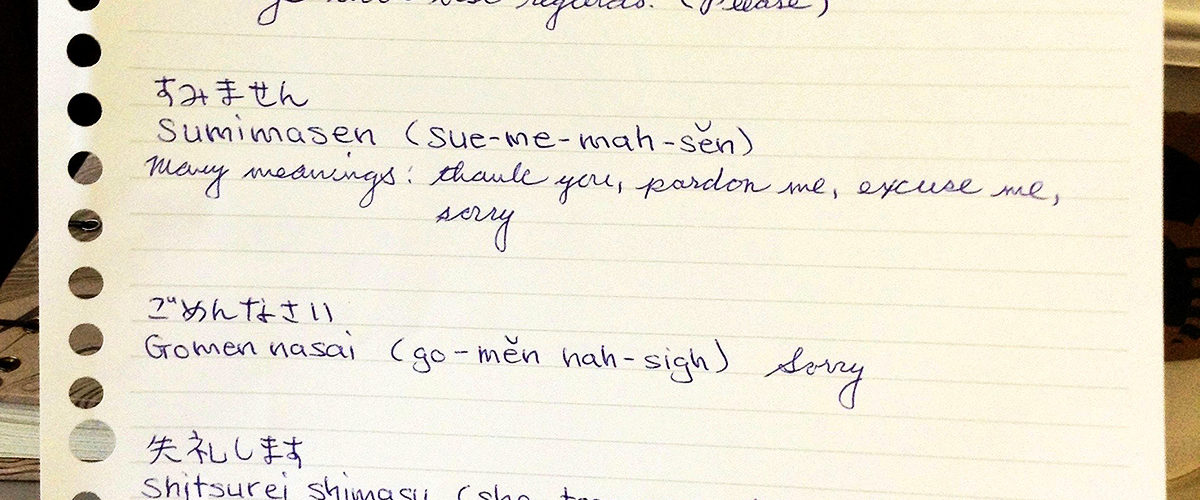 best regards. (Please)
すみません
Sumimasen (sue-me-mah-sĕn)
Many meanings: thank you, pardon me, excuse me,
sorry
ごめんなさい
Gomen nasai (go-mĕn nah-sigh) Sorry
失礼します
Shitsurei shimasu (she